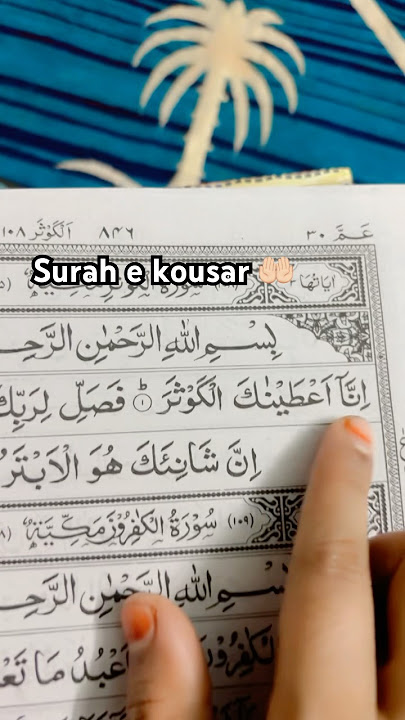 عَمَّ ٣٠
٨٤٦
اَلْكَوْثَر ١٠٨
Surah e kousar 🤲🏻
اٰيَاتُهَا
سُوْرَةُ
بِسْمِ اللّٰهِ الرَّحْمٰنِ
اِنَّآ اَعْطَيْنٰكَ الْكَوْثَرَ ۝١ؕ فَصَلِّ لِرَبِّكَ
اِنَّ شَانِئَكَ هُوَ الْاَبْتَرُ
(١٠٩) سُوْرَةُ الْكٰفِرُوْنَ مَكِّيَّةٌ
اللّٰهِ الرَّحْمٰنِ
اَعْبُدُ مَا